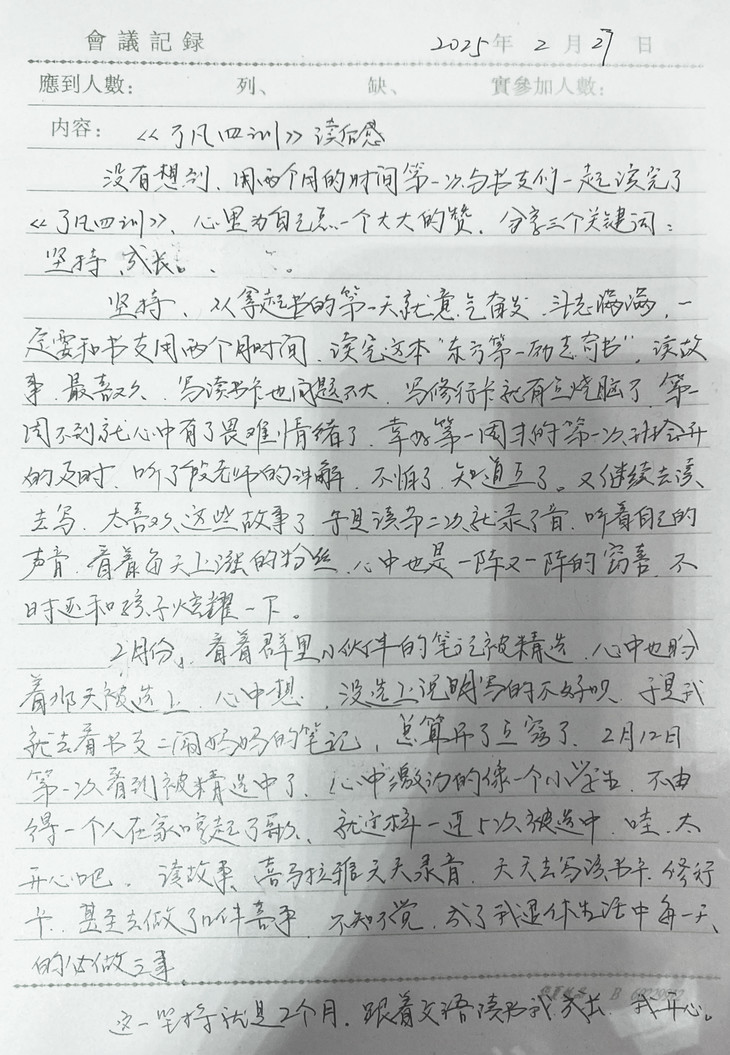 會議記录 2025年 2月 27日
應到人數： 列、 缺、 實參加人數：
内容： 《了凡四训》读后感
没有想到，用两个月的时间第一次与书友们一起读完了
《了凡四训》，心里为自己点一个大大的赞，分享三个关键词：
坚持、成长。
坚持，从拿起书的第一天就意气奋发，斗志满满，一
定要和书友用两个月时间，读完这本“东方第一励志奇书”，读故
事，最喜欢，写读书卡也问题不大，写修行卡就有点烧脑了，第一
周不到就心中有了畏难情绪了，幸好第一周末的第一次班会开
的及时，听了段老师的讲解，不怕了，知道点了。又继续去读
去写，太喜欢这些故事了，于是读第二次就录了音，听着自己的
声音，看着每天上涨的粉丝，心中也是一阵又一阵的窃喜，不
时还和孩子炫耀一下。
2月份，看着群里小伙伴的笔记被精选，心中也盼
着那天被选上，心中想，没选上说明写的不好呗，于是我
就去看书友二闹妈妈的笔记，总算开了点窍了，2月12日
第一次看到被精选中了，心中激动的像一个小学生，不由
得一个人在家唱起了歌，就这样一连5次被选中，哇，太
开心吧，读故事，喜马拉雅天天录音，天天去写读书卡，修行
卡，甚至去做了口件喜事，不知不觉，成了我退休生活中每一天
的必做之事，
这一坚持就是2个月，跟着文语读书我成长，我开心。